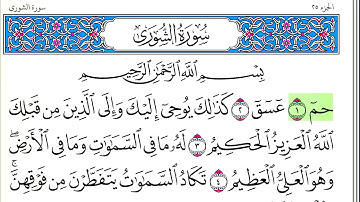 سورة الشورى
الجزء ٢٥
سُورَةُ الشُّورَىٰ
بِسْمِ اللَّهِ الرَّحْمَٰنِ الرَّحِيمِ
حمٓ ١ عٓسٓقٓ ٢ كَذَٰلِكَ يُوحِىٓ إِلَيْكَ وَإِلَى الَّذِينَ مِن قَبْلِكَ
اللَّهُ الْعَزِيزُ الْحَكِيمُ ٣ لَهُۥ مَا فِى السَّمَٰوَٰتِ وَمَا فِى الْأَرْضِ ۖ
وَهُوَ الْعَلِىُّ الْعَظِيمُ ٤ تَكَادُ السَّمَٰوَٰتُ يَتَفَطَّرْنَ مِن فَوْقِهِنَّ ۚ